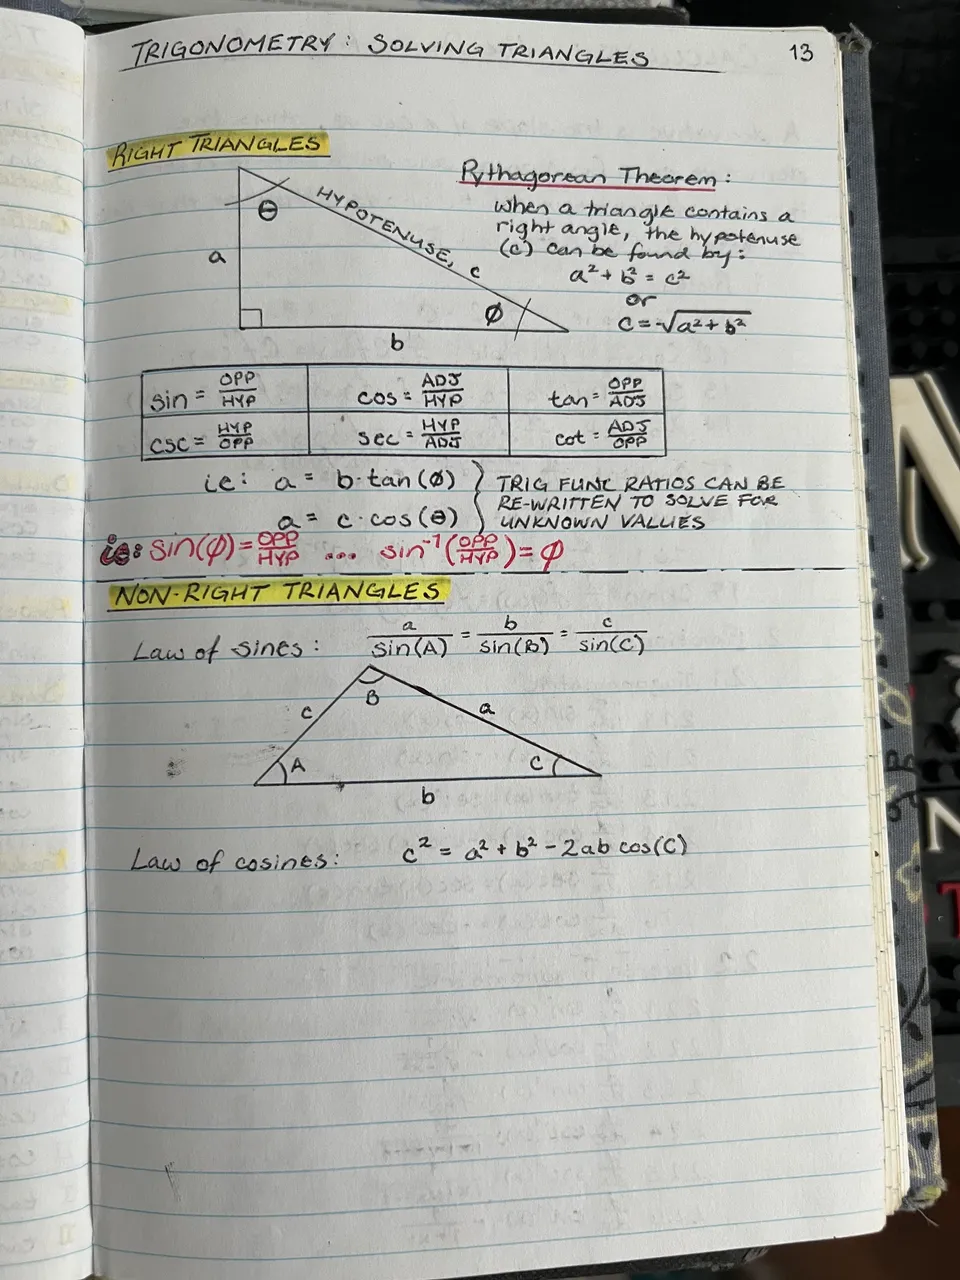 TRIGONOMETRY: SOLVING TRIANGLES
13
RIGHT TRIANGLES
θ
HYPOTENUSE, c
a
φ
b
Pythagorean Theorem:
when a triangle contains a
right angle, the hypotenuse
(c) can be found by:
a² + b² = c²
or
c = √a² + b²
sin = OPP/HYP
cos = ADJ/HYP
tan = OPP/ADJ
csc = HYP/OPP
sec = HYP/ADJ
cot = ADJ/OPP
ie: a = b·tan(φ)
a = c·cos(θ)
TRIG FUNC RATIOS CAN BE
RE-WRITTEN TO SOLVE FOR
UNKNOWN VALUES
ie: sin(φ) = OPP/HYP ... sin⁻¹(OPP/HYP) = φ
NON-RIGHT TRIANGLES
Law of sines: a/sin(A) = b/sin(B) = c/sin(C)
B
c
a
A
C
b
Law of cosines: c² = a² + b² - 2ab cos(C)